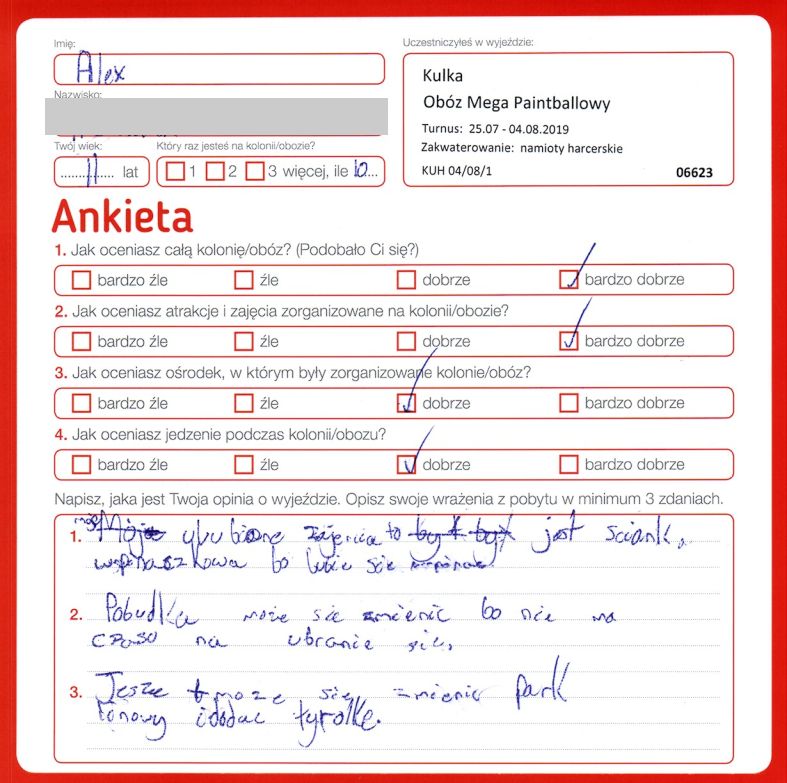 Imię:
Alex
Uczestniczyłeś w wyjeździe:
Kulka
Obóz Mega Paintballowy
Turnus: 25.07 - 04.08.2019
Zakwaterowanie: namioty harcerskie
KUH 04/08/1 06623
Nazwisko:
Twój wiek: Który raz jesteś na kolonii/obozie?
11 lat 1 2 3 więcej, ile 10
Ankieta
1. Jak oceniasz całą kolonię/obóz? (Podobało Ci się?)
bardzo źle źle dobrze bardzo dobrze
2. Jak oceniasz atrakcje i zajęcia zorganizowane na kolonii/obozie?
bardzo źle źle dobrze bardzo dobrze
3. Jak oceniasz ośrodek, w którym były zorganizowane kolonie/obóz?
bardzo źle źle dobrze bardzo dobrze
4. Jak oceniasz jedzenie podczas kolonii/obozu?
bardzo źle źle dobrze bardzo dobrze
Napisz, jaka jest Twoja opinia o wyjeździe. Opisz swoje wrażenia z pobytu w minimum 3 zdaniach.
1. to jest
bo lubie sie
2. Pobudka może sie zmienić bo nie ma
czasu na ubranie sie.
3. Jesze moze się zmienic park
linowy i dodac tyrolke.